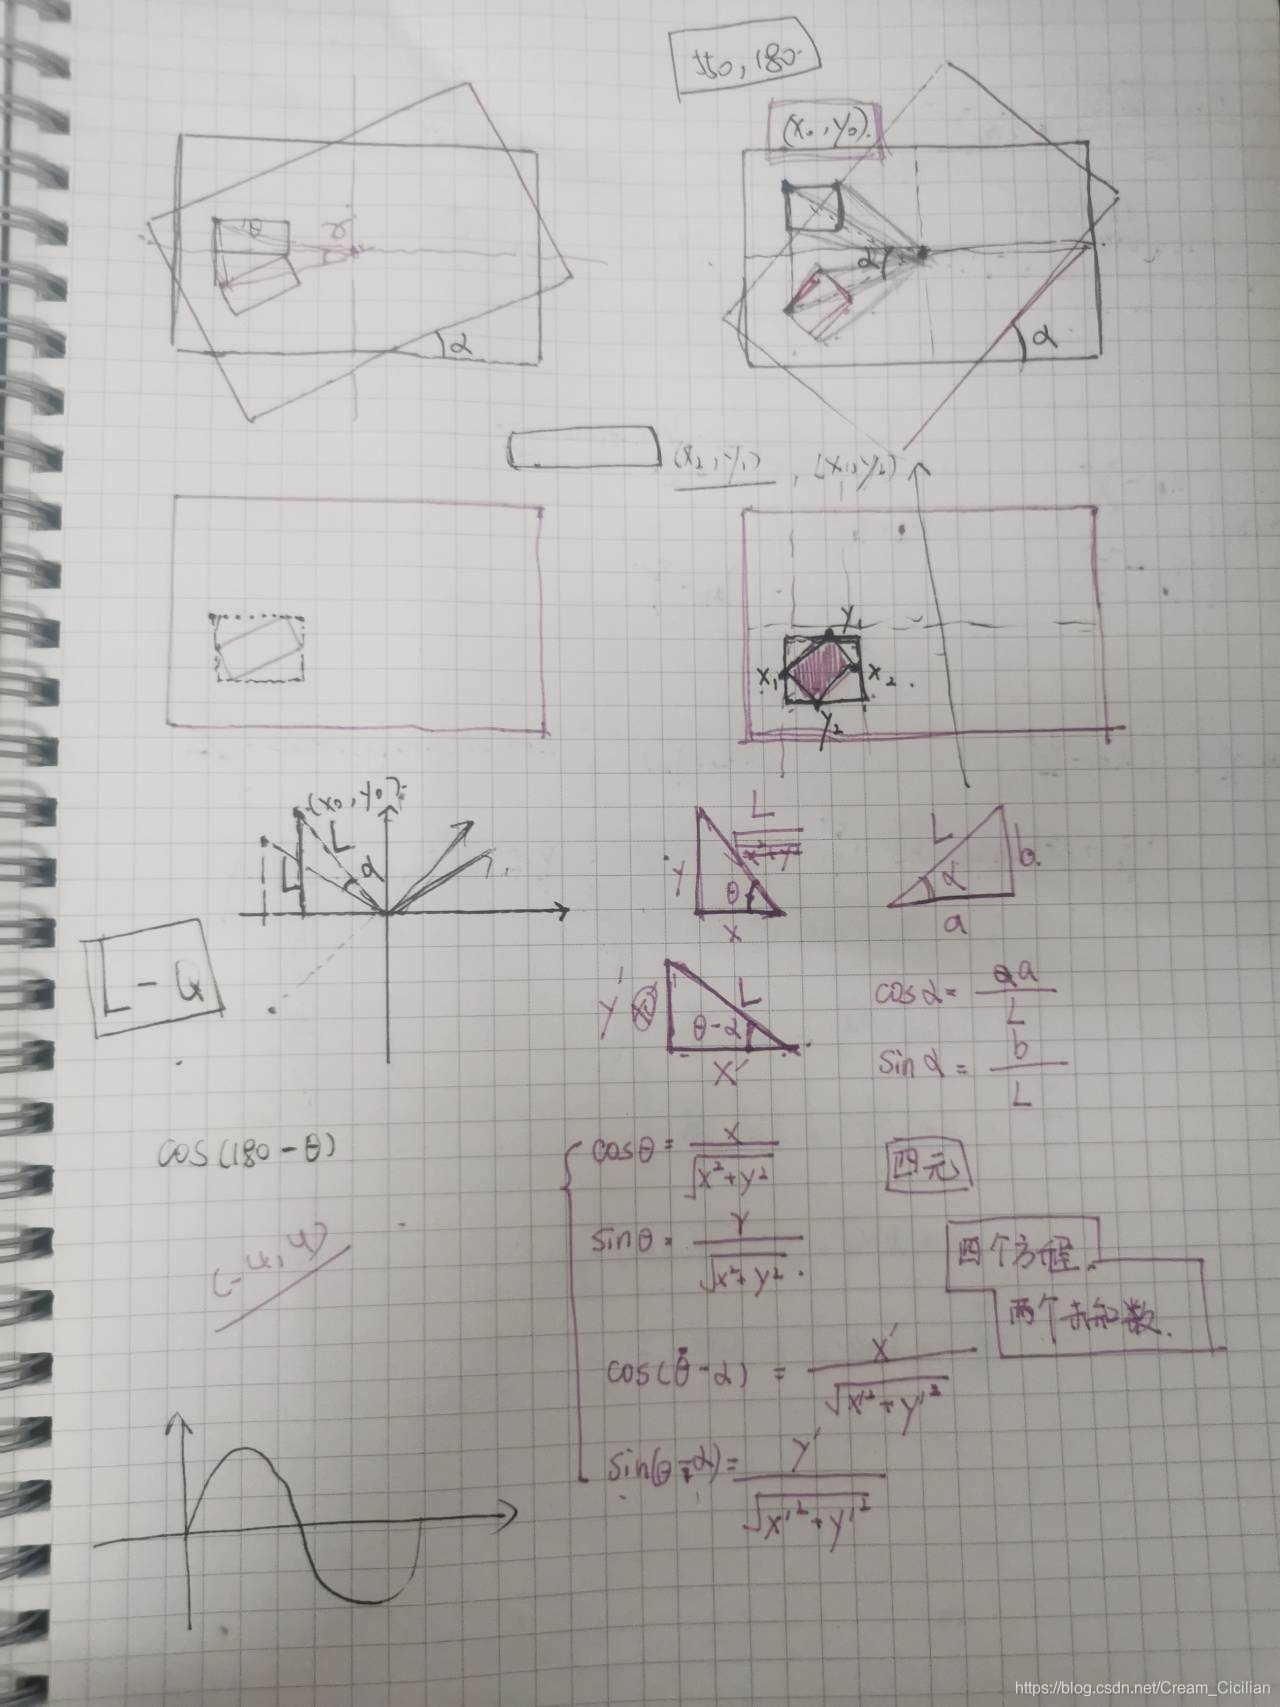 550,180
(x₀,y₀)
θ
α
α
α
α
(x₂,y₁),(x₁,y₂)
y₁
x₁
x₂
y₂
(x₀,y₀)
L
α
L
√x²+y²
y
θ
x
L
α
b
a
L-4
y'
L
θ-α
x'
cosα=a/L
sinα=b/L
cos(180-θ)
(-4,4)
cosθ=x/√x²+y²
sinθ=y/√x²+y²
cos(θ-α)=x'/√x'²+y'²
sin(θ-α)=y'/√x'²+y'²
四元
四个方程
两个未知数.
https://blog.csdn.net/Cream_Cicilian